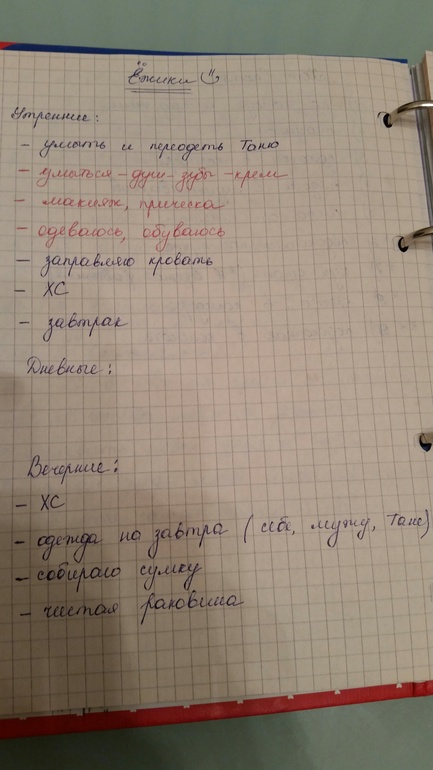 Ёжики
Утренние:
- умыть и переодеть Таню
- умыться - душ - зубы - крем
- макияж, прическа
- одеваюсь, обуваюсь
- заправляю кровать
- ХС
- завтрак
Дневные:
Вечерние:
- ХС
- одежда на завтра (себе, мужу, Тане)
- собираю сумку
- чистая раковина